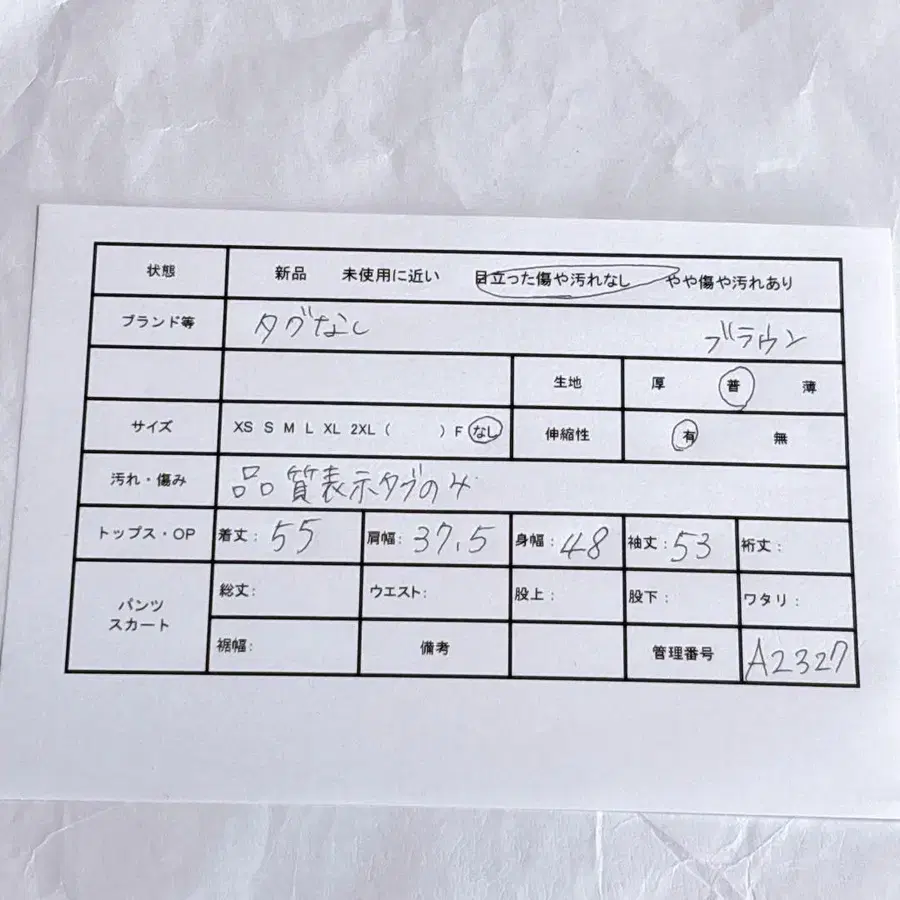 状態 新品 未使用に近い 目立った傷や汚れなし やや傷や汚れあり
ブランド等 タグなし ブラウン
生地 厚 普 薄
サイズ XS S M L XL 2XL ( ) F なし 伸縮性 有 無
汚れ・傷み 品質表示タグのみ
トップス・OP 着丈: 55 肩幅: 37.5 身幅: 48 袖丈: 53 裄丈:
パンツ スカート 総丈: ウエスト: 股上: 股下: ワタリ:
裾幅: 備考 管理番号 A2327